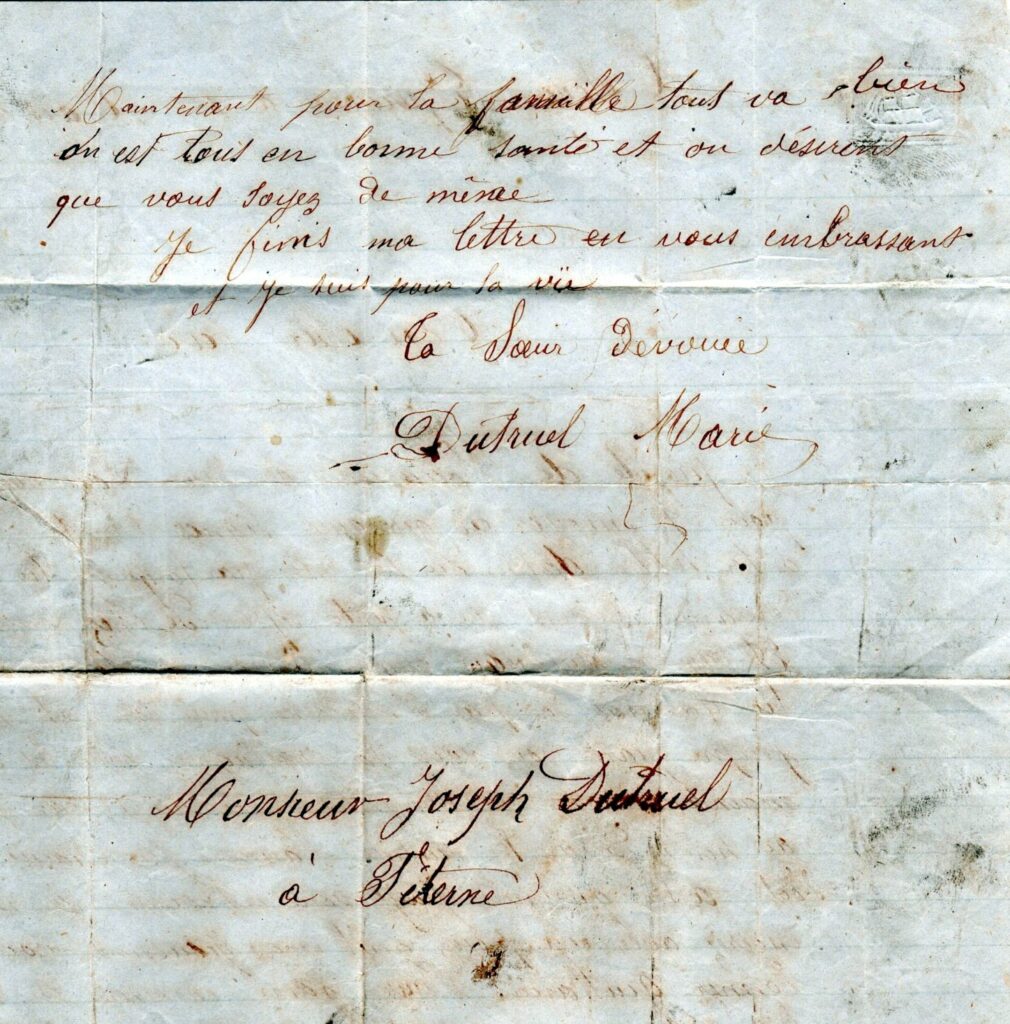 Maintenant pour la famille tous va bien
on est tous en bonne santé et on désirent
que vous soyez de même
Je finis ma lettre en vous embrassant
et je suis pour la vie
Ta Sœur Dévouée
Dutruel Marie
Monsieur Joseph Dutruel
à Féterne